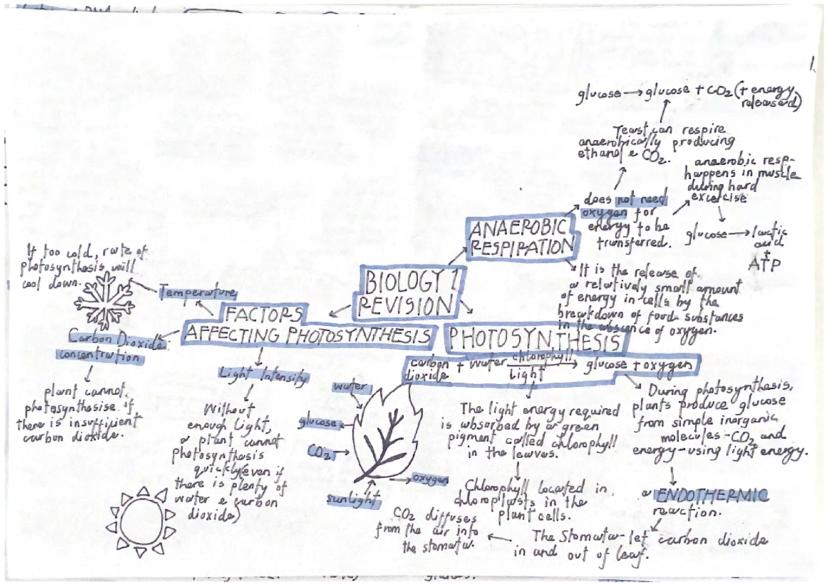 1.
glucose → glucose + CO₂ (+ energy
released)
Yeast can respire
anaerobically producing
ethanol & CO₂.
anaerobic resp-
happens in muscle
during hard
exercise
glucose → lactic
acid
+
ATP
does not need
oxygen for
energy to be
transferred.
ANAEROBIC
RESPIRATION
It is the release of
a relatively small amount
of energy in cells by the
breakdown of food substances
in the absence of oxygen.
BIOLOGY 1
REVISION
FACTORS
AFFECTING PHOTOSYNTHESIS
Temperature
If too cold, rate of
photosynthesis will
cool down.
Carbon Dioxide
concentration
plant cannot
photosynthesise if
there is insufficient
carbon dioxide.
Light Intensity
Without
enough light,
a plant cannot
photosynthesis
quickly (even if
there is plenty of
water & carbon
dioxide)
PHOTOSYNTHESIS
carbon dioxide + water → glucose + oxygen
chlorophyll
light
water
glucose
CO₂
sunlight
oxygen
The light energy required
is absorbed by a green
pigment called chlorophyll
in the leaves.
Chlorophyll located in
chloroplasts in the
plant cells.
CO₂ diffuses
from the air into
the stomata.
The Stomata - let carbon dioxide
in and out of leaf.
During photosynthesis,
plants produce glucose
from simple inorganic
molecules - CO₂ and
energy - using light energy.
a ENDOTHERMIC
reaction.